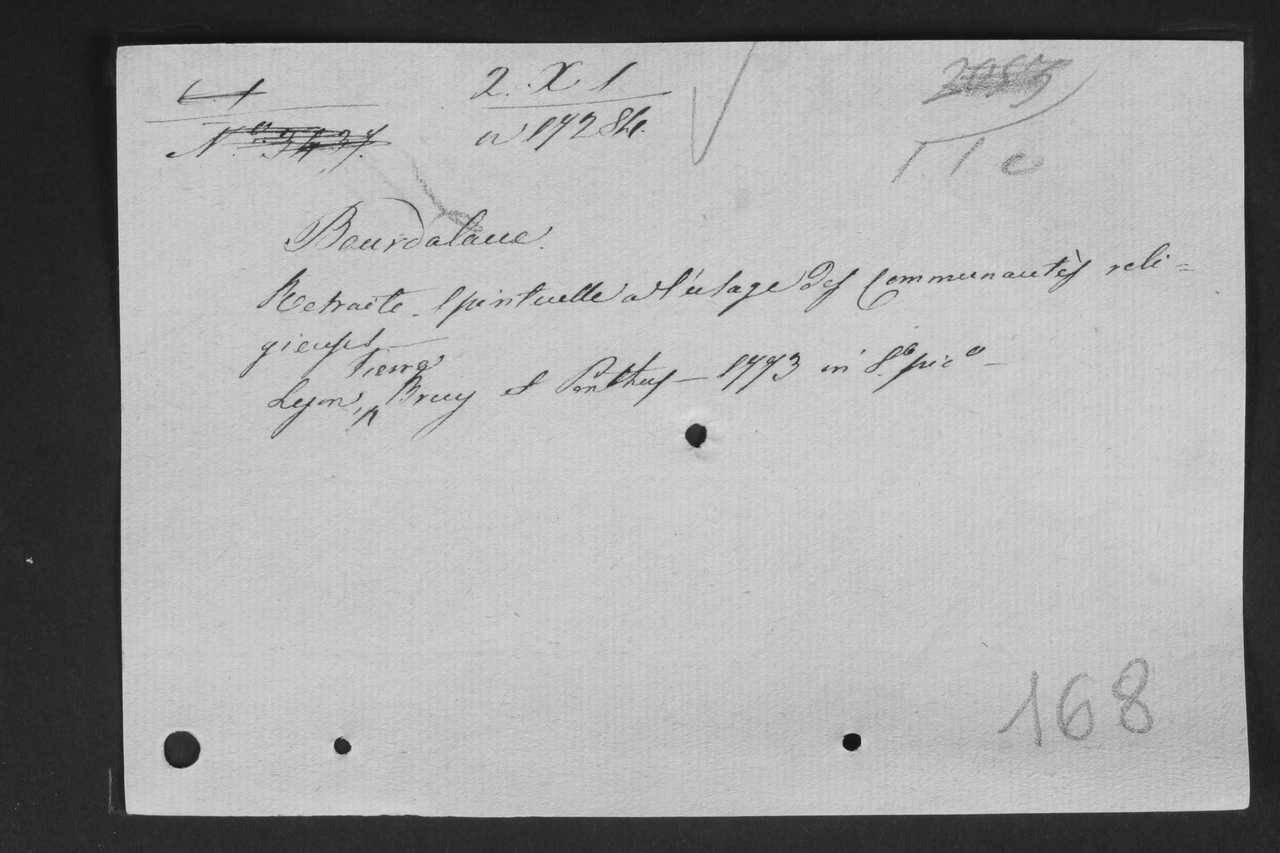 2. X 1
T 1 c
Bourdaloue.
Retraite Spirituelle à l'usage des Communautés reli=
gieuses
Lyon, Pierre Bruy et Ponthus — 1793 in 8.° pic°
168